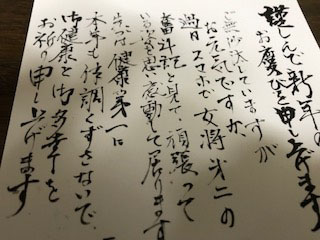 謹しんで新年の
お慶びを申し上げます
ご無沙汰していますが
お元気ですか
過日スマホで女将才二の
奮斗記を見て頑張って
いる姿に感動して居ります
先づは健康第一に
本年も体調くずさないで
御健康と御多幸を
お祈り申し上げます